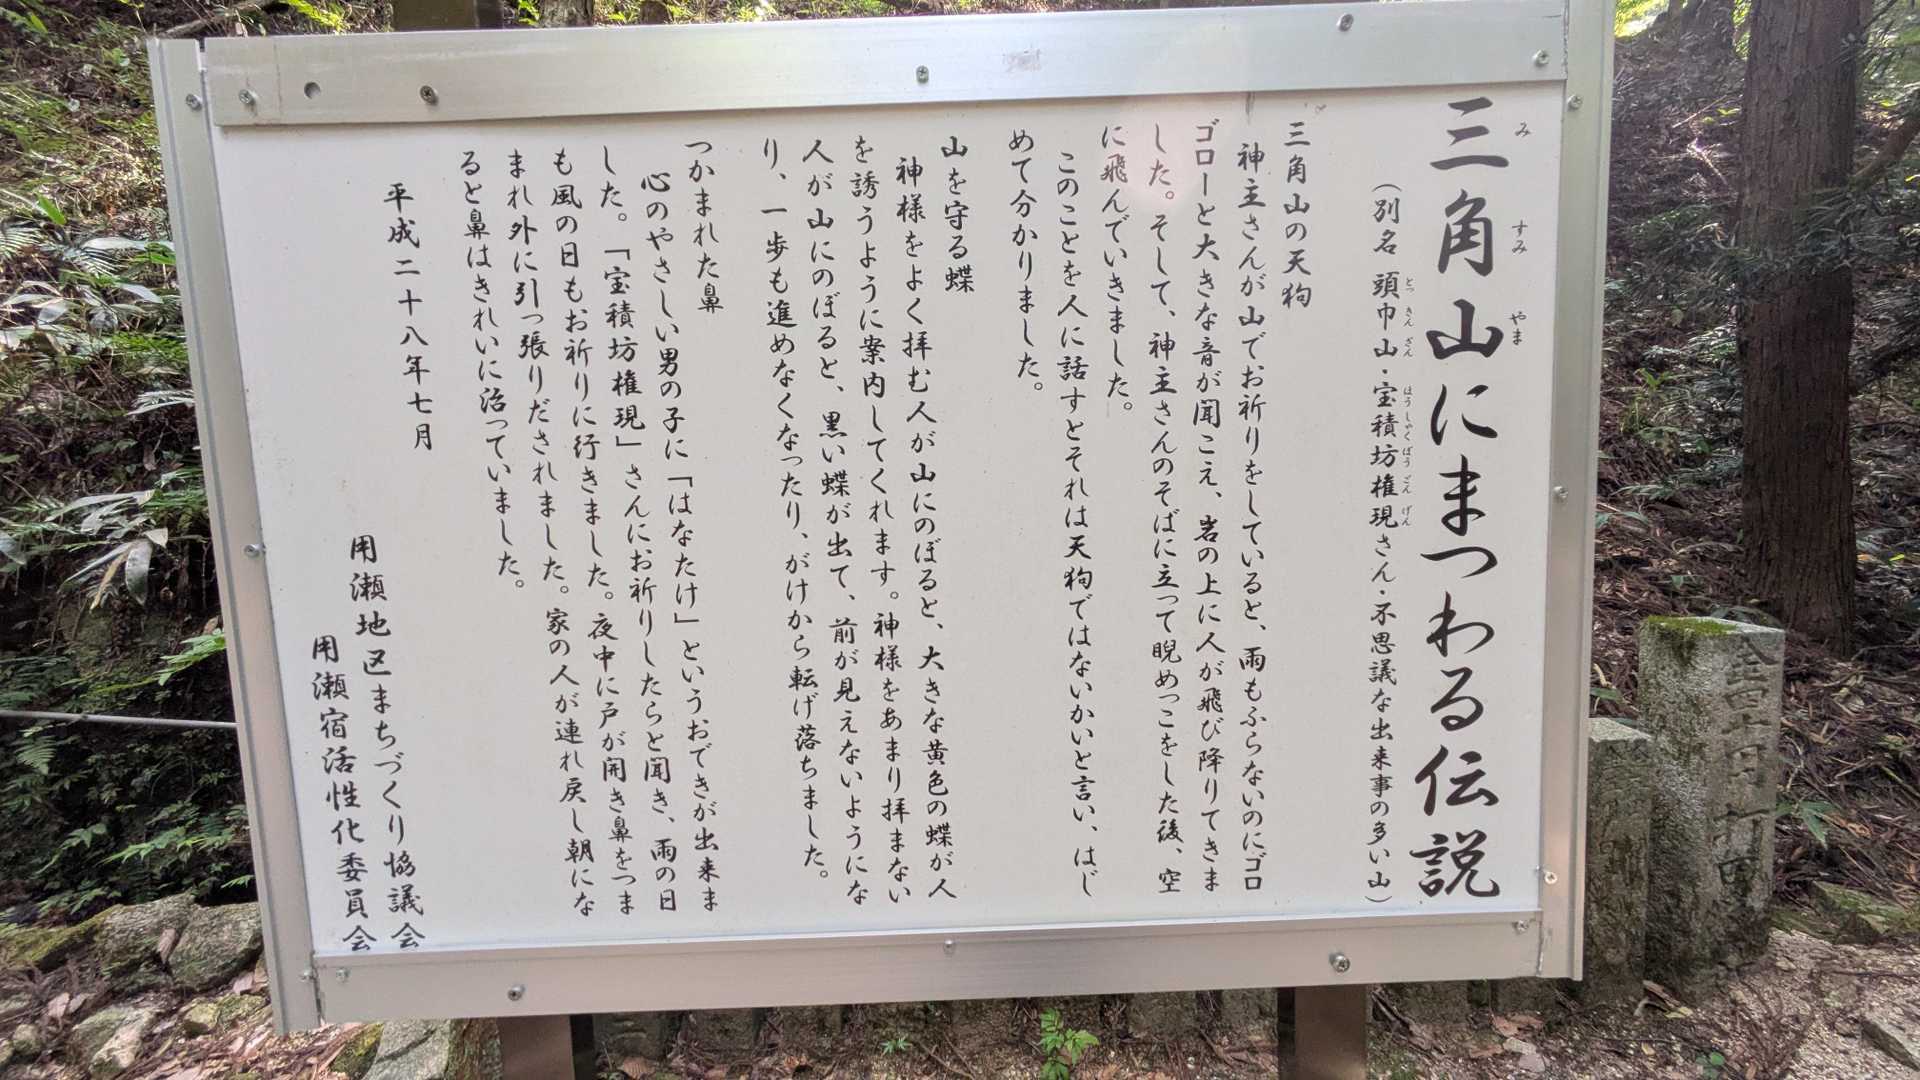 三角山にまつわる伝説
みすみやま
（別名 頭巾山・宝積坊権現さん・不思議な出来事の多い山）
とっきんざん ほうしゃくぼうごんげん
三角山の天狗
神主さんが山でお祈りをしていると、雨もふらないのにゴロ
ゴローと大きな音が聞こえ、岩の上に人が飛び降りてきま
した。そして、神主さんのそばに立って睨めっこをした後、空
に飛んでいきました。
このことを人に話すとそれは天狗ではないかいと言い、はじ
めて分かりました。
山を守る蝶
神様をよく拝む人が山にのぼると、大きな黄色の蝶が人
を誘うように案内してくれます。神様をあまり拝まない
人が山にのぼると、黒い蝶が出て、前が見えないようにな
り、一歩も進めなくなったり、がけから転げ落ちました。
つかまれた鼻
心のやさしい男の子に「はなたけ」というおできが出来ま
した。「宝積坊権現」さんにお祈りしたらと聞き、雨の日
も風の日もお祈りに行きました。夜中に戸が開き鼻をつま
まれ外に引っ張りだされました。家の人が連れ戻し朝にな
ると鼻はきれいに治っていました。
平成二十八年七月
用瀬地区まちづくり協議会
用瀬宿活性化委員会